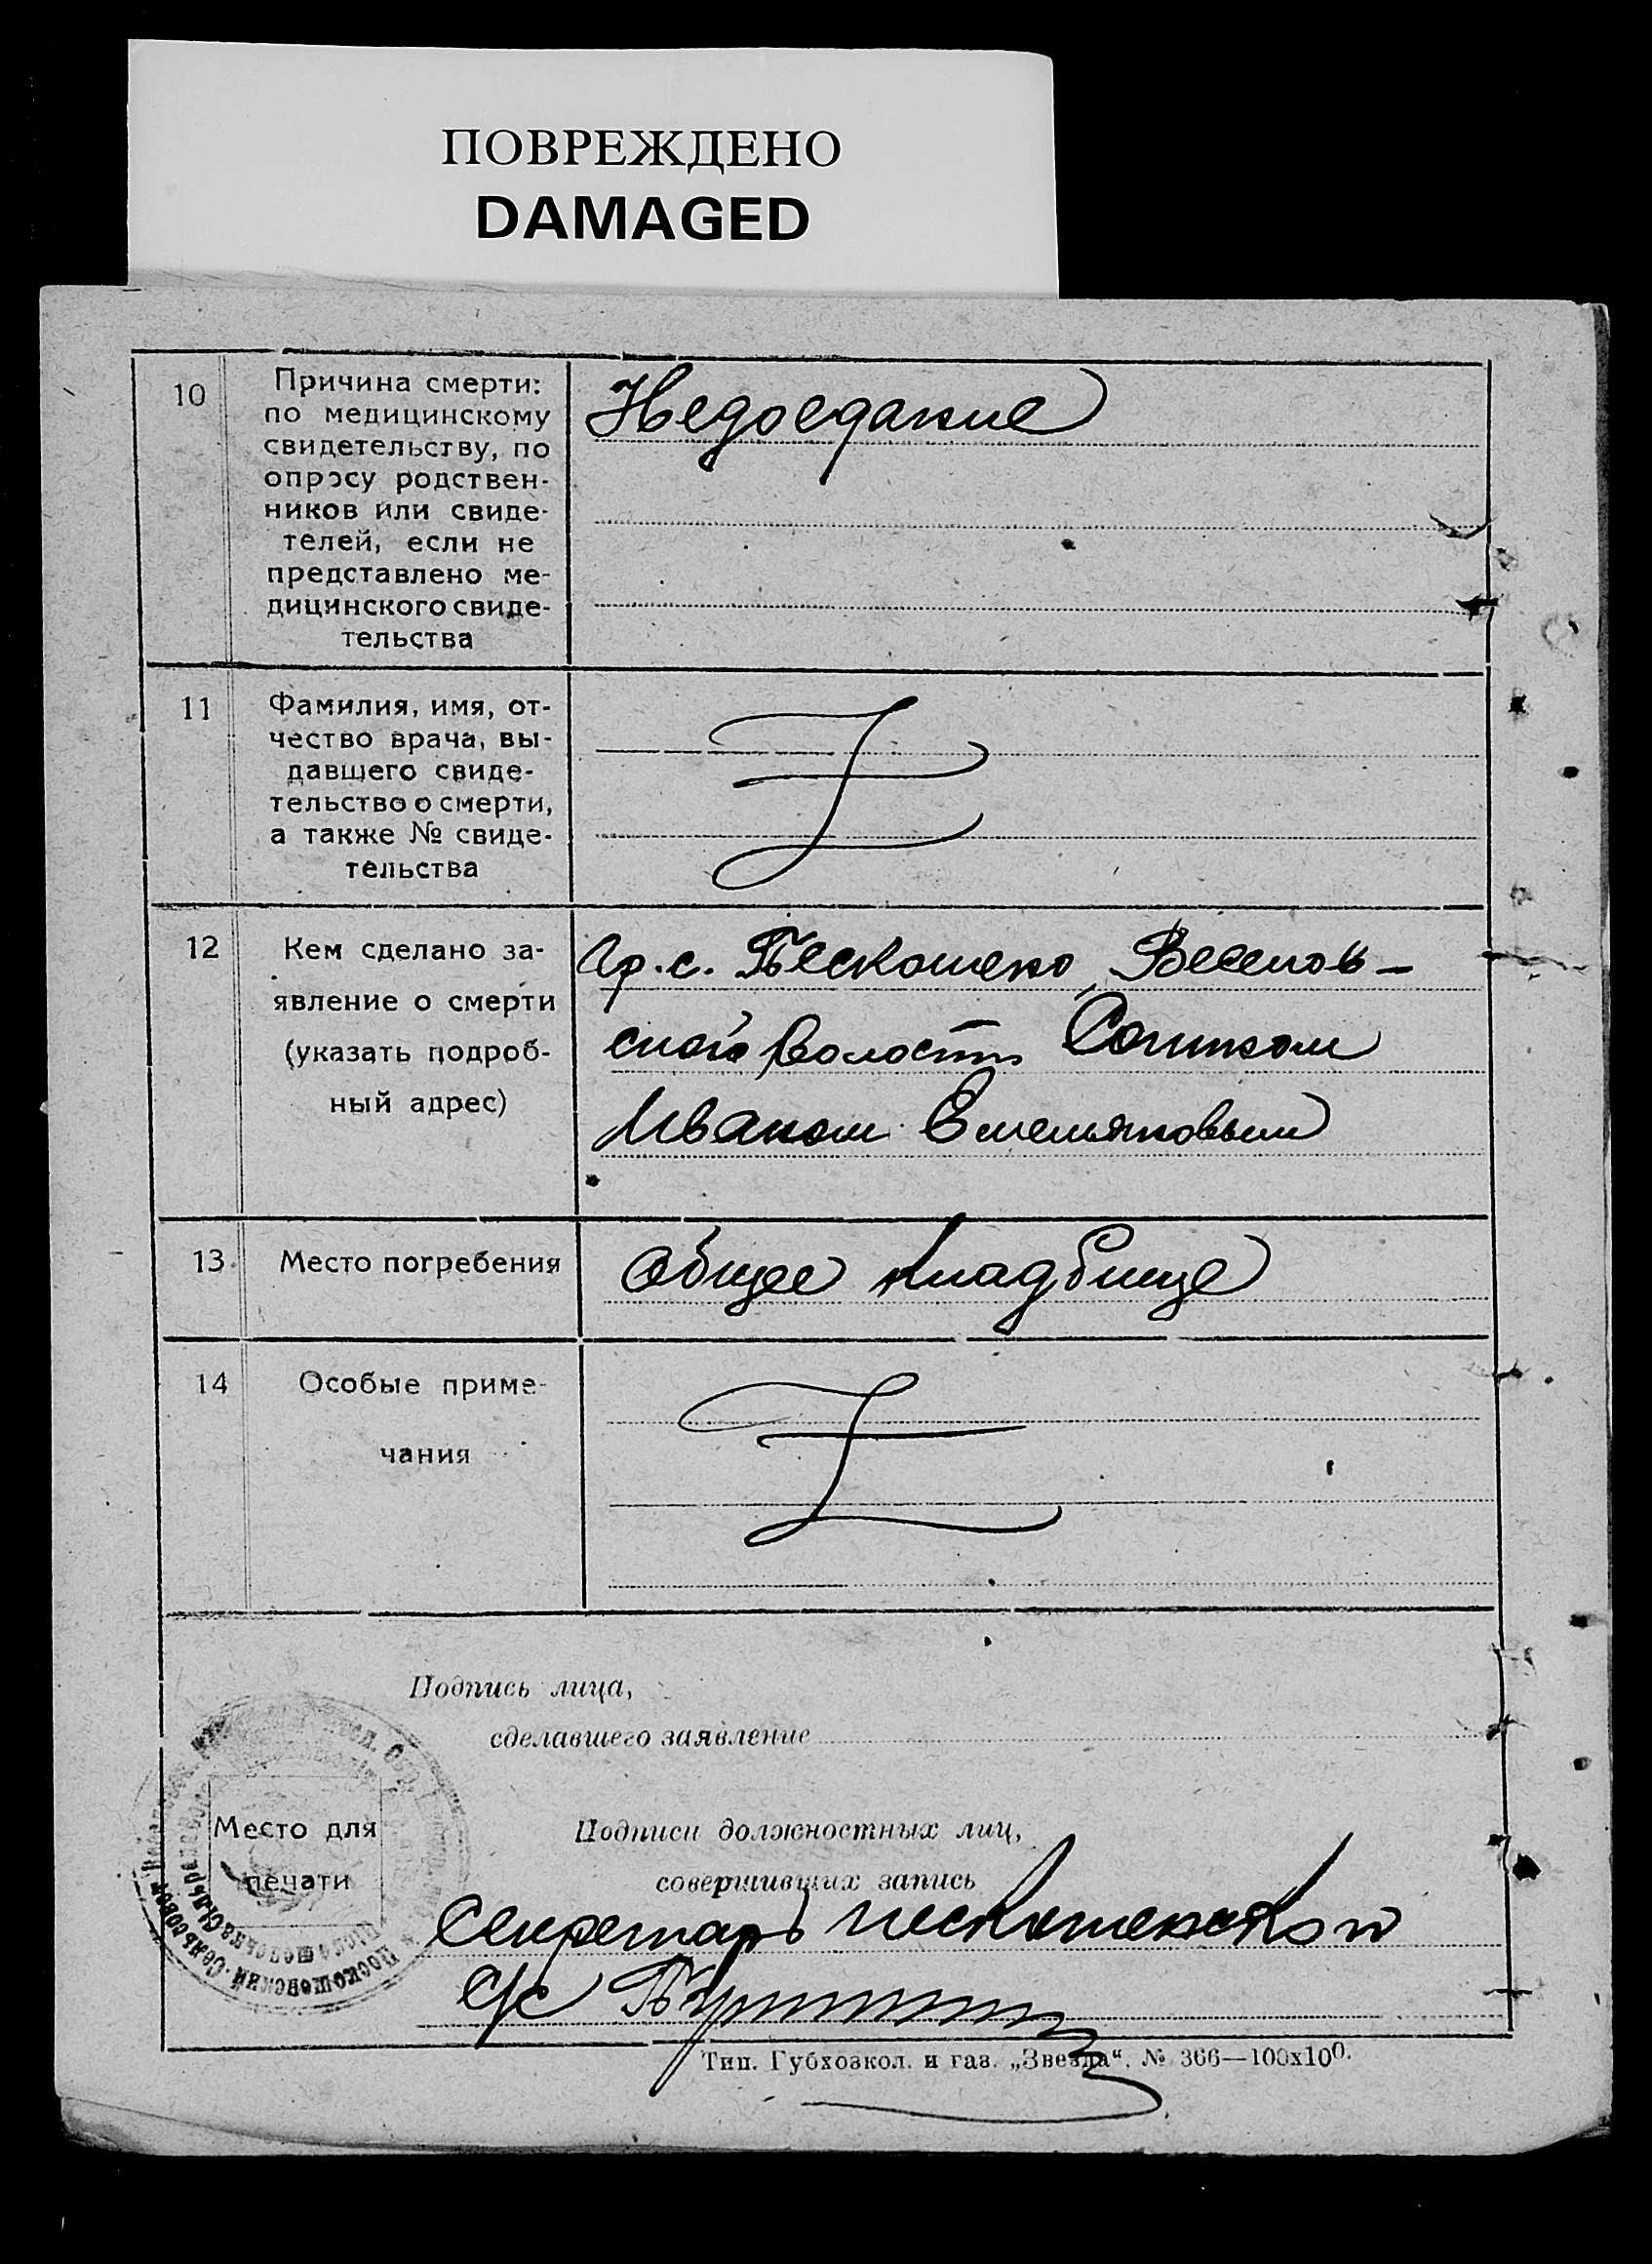 ПОВРЕЖДЕНО
DAMAGED
10
Причина смерти:
по медицинскому
свидетельству, по
опросу родствен-
ников или свиде-
телей, если не
представлено ме-
дицинского свиде-
тельства
Недоедание
11
Фамилия, имя, от-
чество врача, вы-
давшего свиде-
тельство о смерти,
а также № свиде-
тельства
12
Кем сделано за-
явление о смерти
(указать подроб-
ный адрес)
Гр. с. Пескошено Веселов-
ской волости
Иваном Емельяновым
13
Место погребения
Общее кладбище
14
Особые приме-
чания
Подпись лица,
сделавшего заявление
Место для
печати
Подписи должностных лиц,
совершивших запись
Секретарь Пескошенского
с/с
Тип. Губхозкол. и газ. „Звезда“. № 366—100х100.